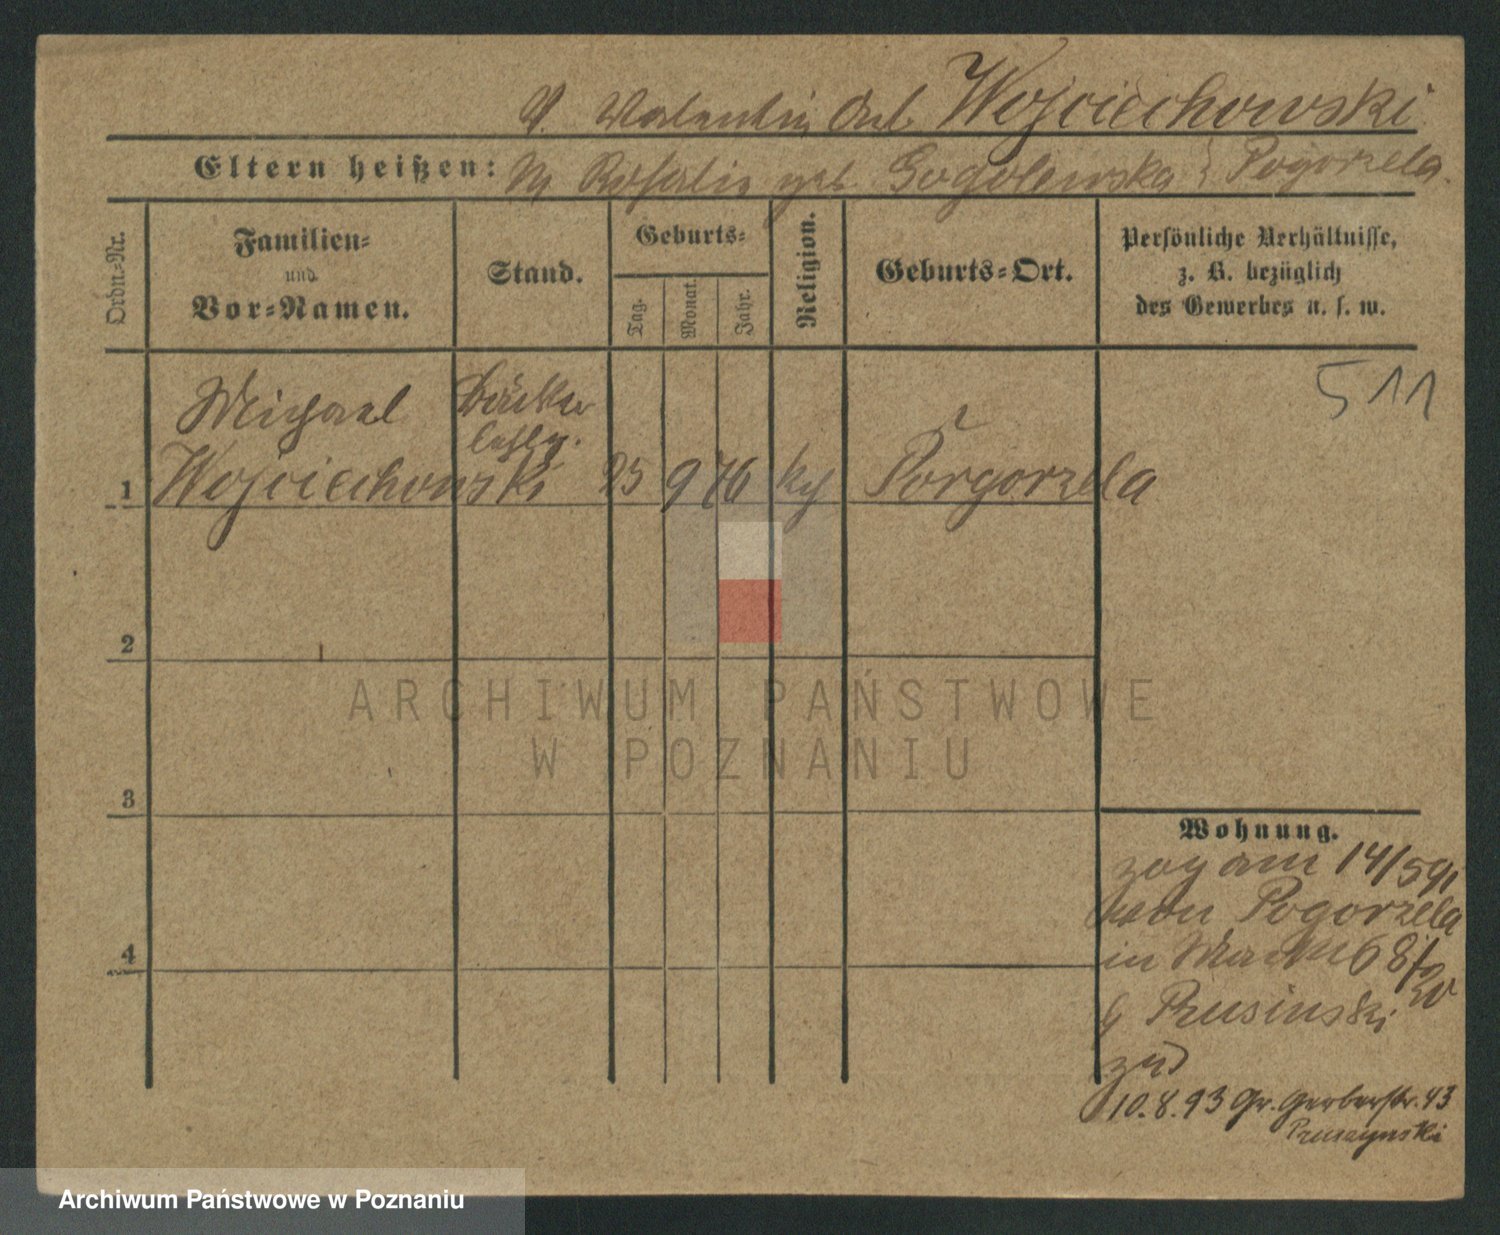 V. Valentin Arb. Wojciechowski
Eltern heißen: M Rosalie geb Gogolewska Pogorzela.
Ordn=Nr.
Familien=
und
Vor=Namen.
Stand.
Geburts=
Tag.
Monat.
Jahr.
Religion.
Geburts=Ort.
Persönliche Verhältnisse,
z. B. bezüglich
des Gewerbes u. s. w.
511
Michael Bäcker
lehrlg.
1 Wojciechowski 25 9 76 kth Porgorzela
2
3
4
Wohnung.
zog am 14/5 91
von Pogorzela
in Markt 68
b Prusinski
zu
10.8.93 Gr. Gerberstr. 43
Pruszynski
ARCHIWUM PAŃSTWOWE
W POZNANIU
Archiwum Państwowe w Poznaniu